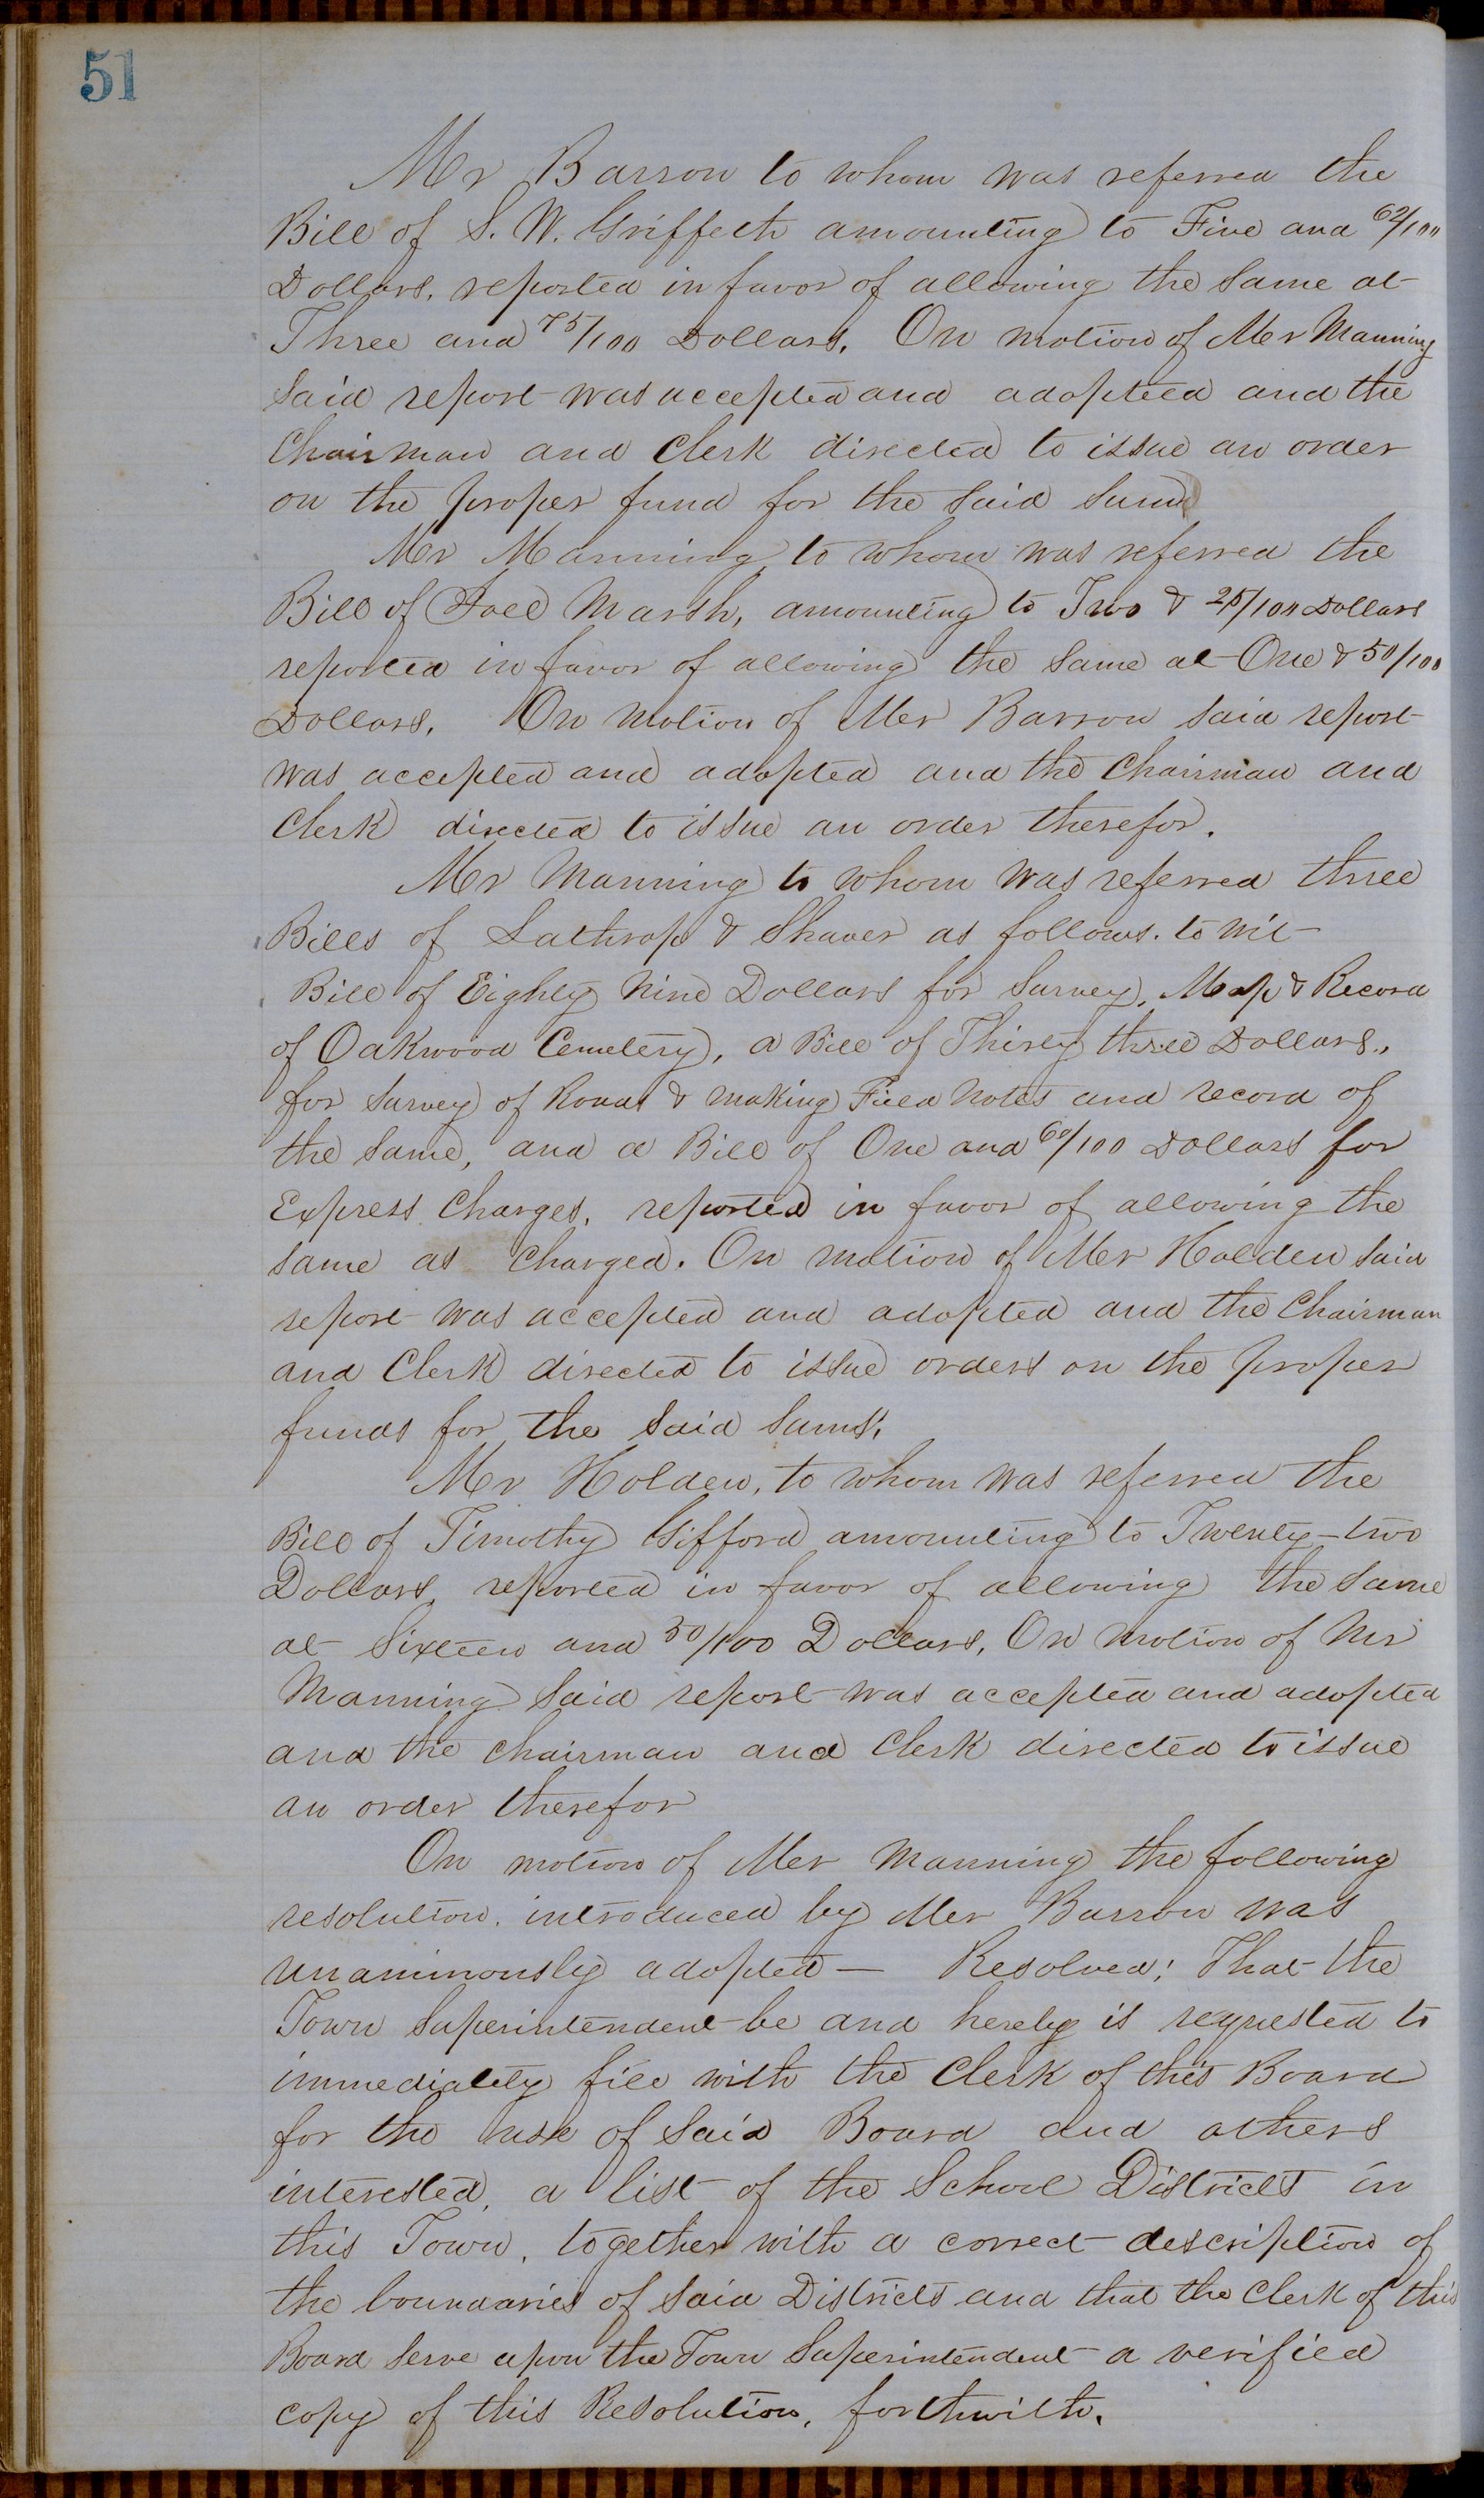 51
Mr Barron to whom was referred the
Bill of S. W. Griffeth amounting to Five and 62/100
Dollars, reported in favor of allowing the same at
Three and 75/100 Dollars. On motion of Mr Manning
said report was accepted and adopteed and the
Chairman and Clerk directed to issue an order
on the proper fund for the said sum
Mr Manning to whom was referred the
Bill of Joel Marsh, amounting to Two & 25/100 Dollars
reported in favor of allowing the same at One & 50/100
Dollars. On motion of Mr Barron said report
was accepted and adopted and the Chairman and
Clerk directed to issue an order therefor.
Mr Manning to whom was referred three
Bills of Lathrop & Shaver as follows. to wit
Bill of Eighty Nine Dollars for Survey, Map & Record
of Oakwood Cemetery, a Bill of Thirty three Dollars.,
for Survey of Roads & making Field Notes and record of
the same, and a Bill of One and 60/100 Dollars for
Express Charges, reported in favor of allowing the
same as Charged. On motion of Mr Holden said
report was accepted and adopted and the Chairman
and Clerk directed to issue orders on the proper
funds for the said sums.
Mr Holden, to whom was referred the
Bill of Timothy Gifford amounting to Twenty-two
Dollars, reported in favor of allowing the same
at Sixteen and 50/100 Dollars. On motion of Mr
Manning said report was accepted and adopted
and the chairman and Clerk directed to issue
an order therefor
On motion of Mr Manning the following
resolution, introduced by Mr Barron was
unanimously adopted — Resolved: That the
Town Superintendent be and hereby is requested to
immediately file with the Clerk of this Board
for the use of said Board and others
interested, a list of the School Districts in
this Town, together with a correct description of
the boundaries of said Districts and that the Clerk of this
Board serve upon the Town Superintendent a verified
copy of this Resolution, forthwith.